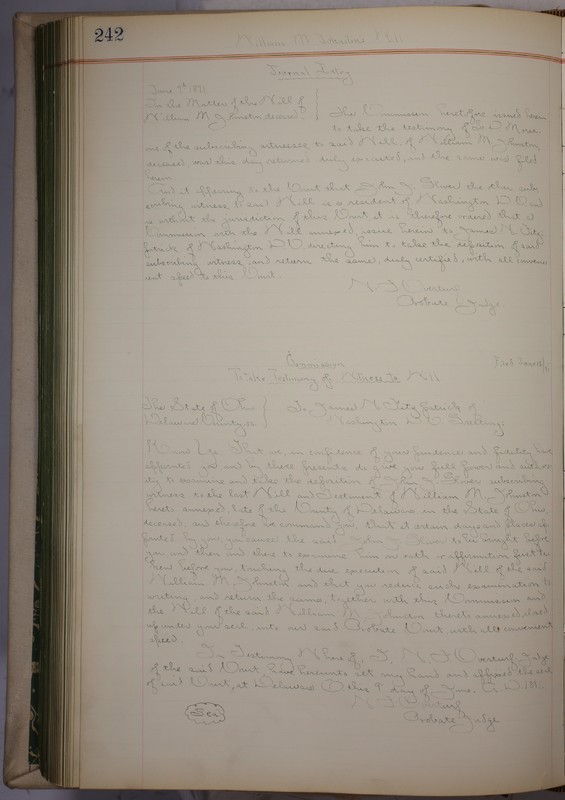 242
William M. Johnston's Will
Second Entry
June 9th 1891
In the Matter of the Will of
William M. Johnston deceased
The Commission heretofore issued herein
to take the testimony of
one of the subscribing witnesses to said Will, of William M. Johnston
deceased, was this day returned duly executed, and the same was filed
herein.
And it appearing to the Court that John J. Slover the other sub
scribing witness to said Will is a resident of Washington D.C. and
is without the jurisdiction of this Court it is therefore ordered that a
Commission with the Will annexed, issue herein to James N. Fitz
patrick of Washington D.C. directing him to take the deposition of said
subscribing witness, and return the same, duly certified, with all conven
ient speed to this Court.
N. F. Overturf
Probate Judge.
Commission
To take Testimony of Witness to Will
The State of Ohio
Delaware County ss
To James N. Fitzpatrick of
Washington D.C. Greeting:
Know Ye, That we, in confidence of your prudence and fidelity have
appointed you and by these presents do give you full power and author
ity to examine and take the deposition of John J. Slover subscribing
witness to the last Will and Testament of William M. Johnston
hereto annexed, late of the County of Delaware in the State of Ohio,
deceased, and therefore we command you, that at certain days and places ap
pointed by you, you cause the said John J. Slover to be brought before
you and then and there to examine him on oath or affirmation first
taken before you, touching the due execution of said Will of the said
William M. Johnston and that you reduce such examination to
writing, and return the same, together with this Commission and
the Will of the said William M. Johnston thereto annexed closed
up under your seal, unto our said Probate Court, with all convenient
speed.
In Testimony Whereof, I, N. F. Overturf, Judge
of the said Court, have hereunto set my hand, and affixed the seal
of said Court, at Delaware O. this 9 day of June, A. D. 1891.
Seal
N. F. Overturf
Probate Judge